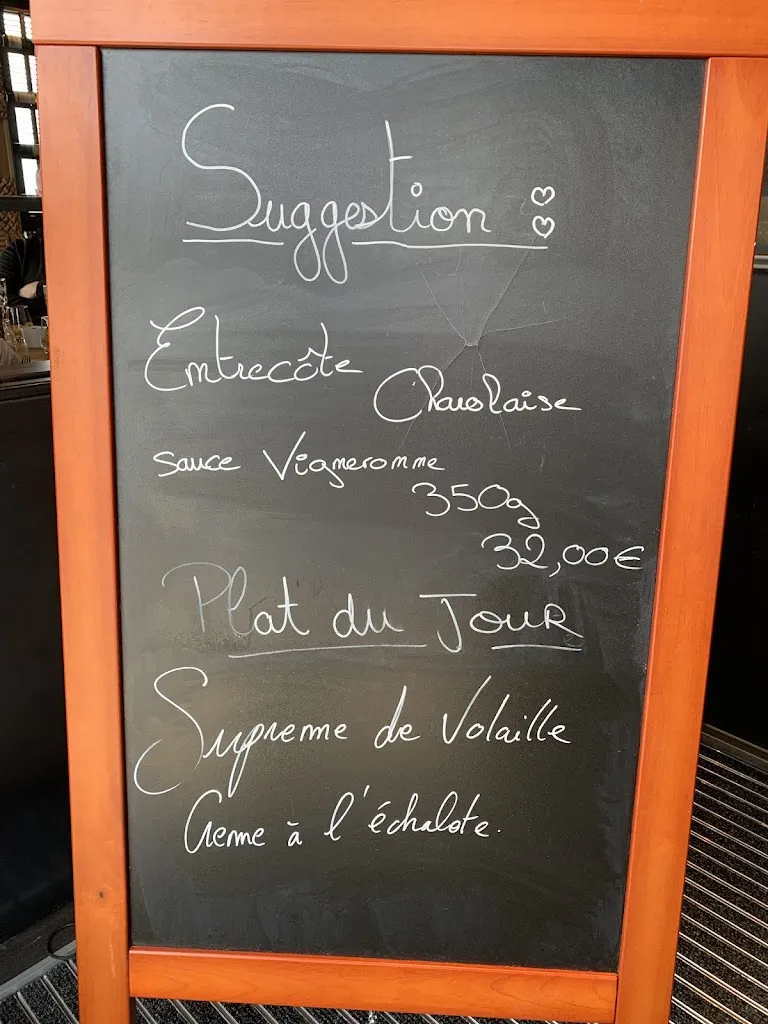 Suggestion :
Entrecôte
Charolaise
sauce Vigneronne
350g
32,00€
Plat du Jour
Supreme de Volaille
Creme à l'échalote.